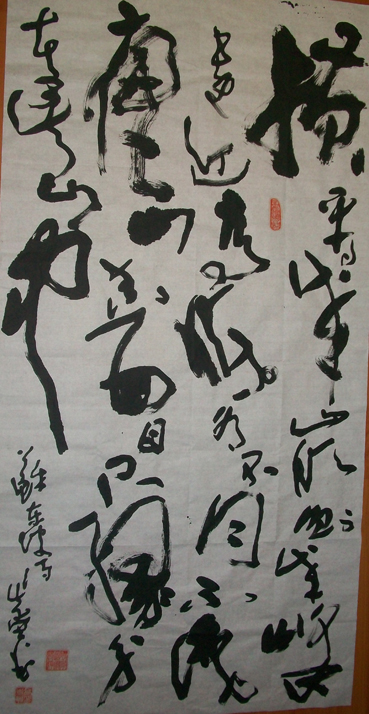 橫看成嶺側成峰
遠近高低各不同不識
廬山真面目只緣身
在此山中
蘇東坡詩